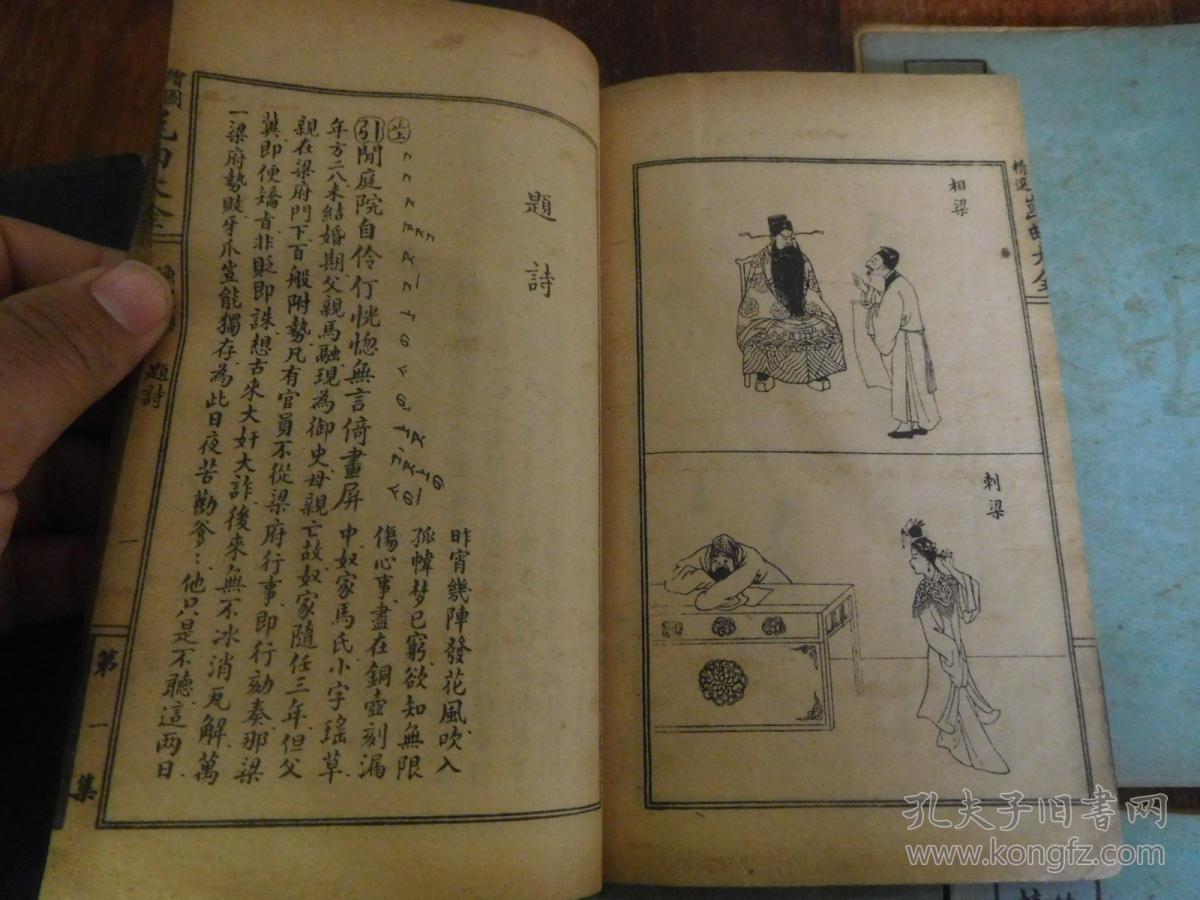 精選崑曲大全
相梁
刺梁
題詩
昨宵幾陣發花風、吹入
孤幃梦已窮、欲知無限
傷心事、盡在銅壺刻漏
引閒庭院自伶仃恍惚無言倚畫屏
中、奴家馬氏、小字瑤草、
年方二八、未結婚期、父親馬融、現為御史、母親亡故、奴家隨任三年、但父
親在梁府門下、百般附勢、凡有官員不從梁府行事、即行劾奏、那梁
冀即便矯旨、非貶即誅、想古來大奸大詐、後來無不冰消瓦解、萬
一梁府勢敗、牙爪豈能獨存、為此日夜苦勸爹〻、他只是不聽、這兩日
繪圖崑曲大全
題詩
一
第一集
孔夫子旧书网
www.kongfz.com